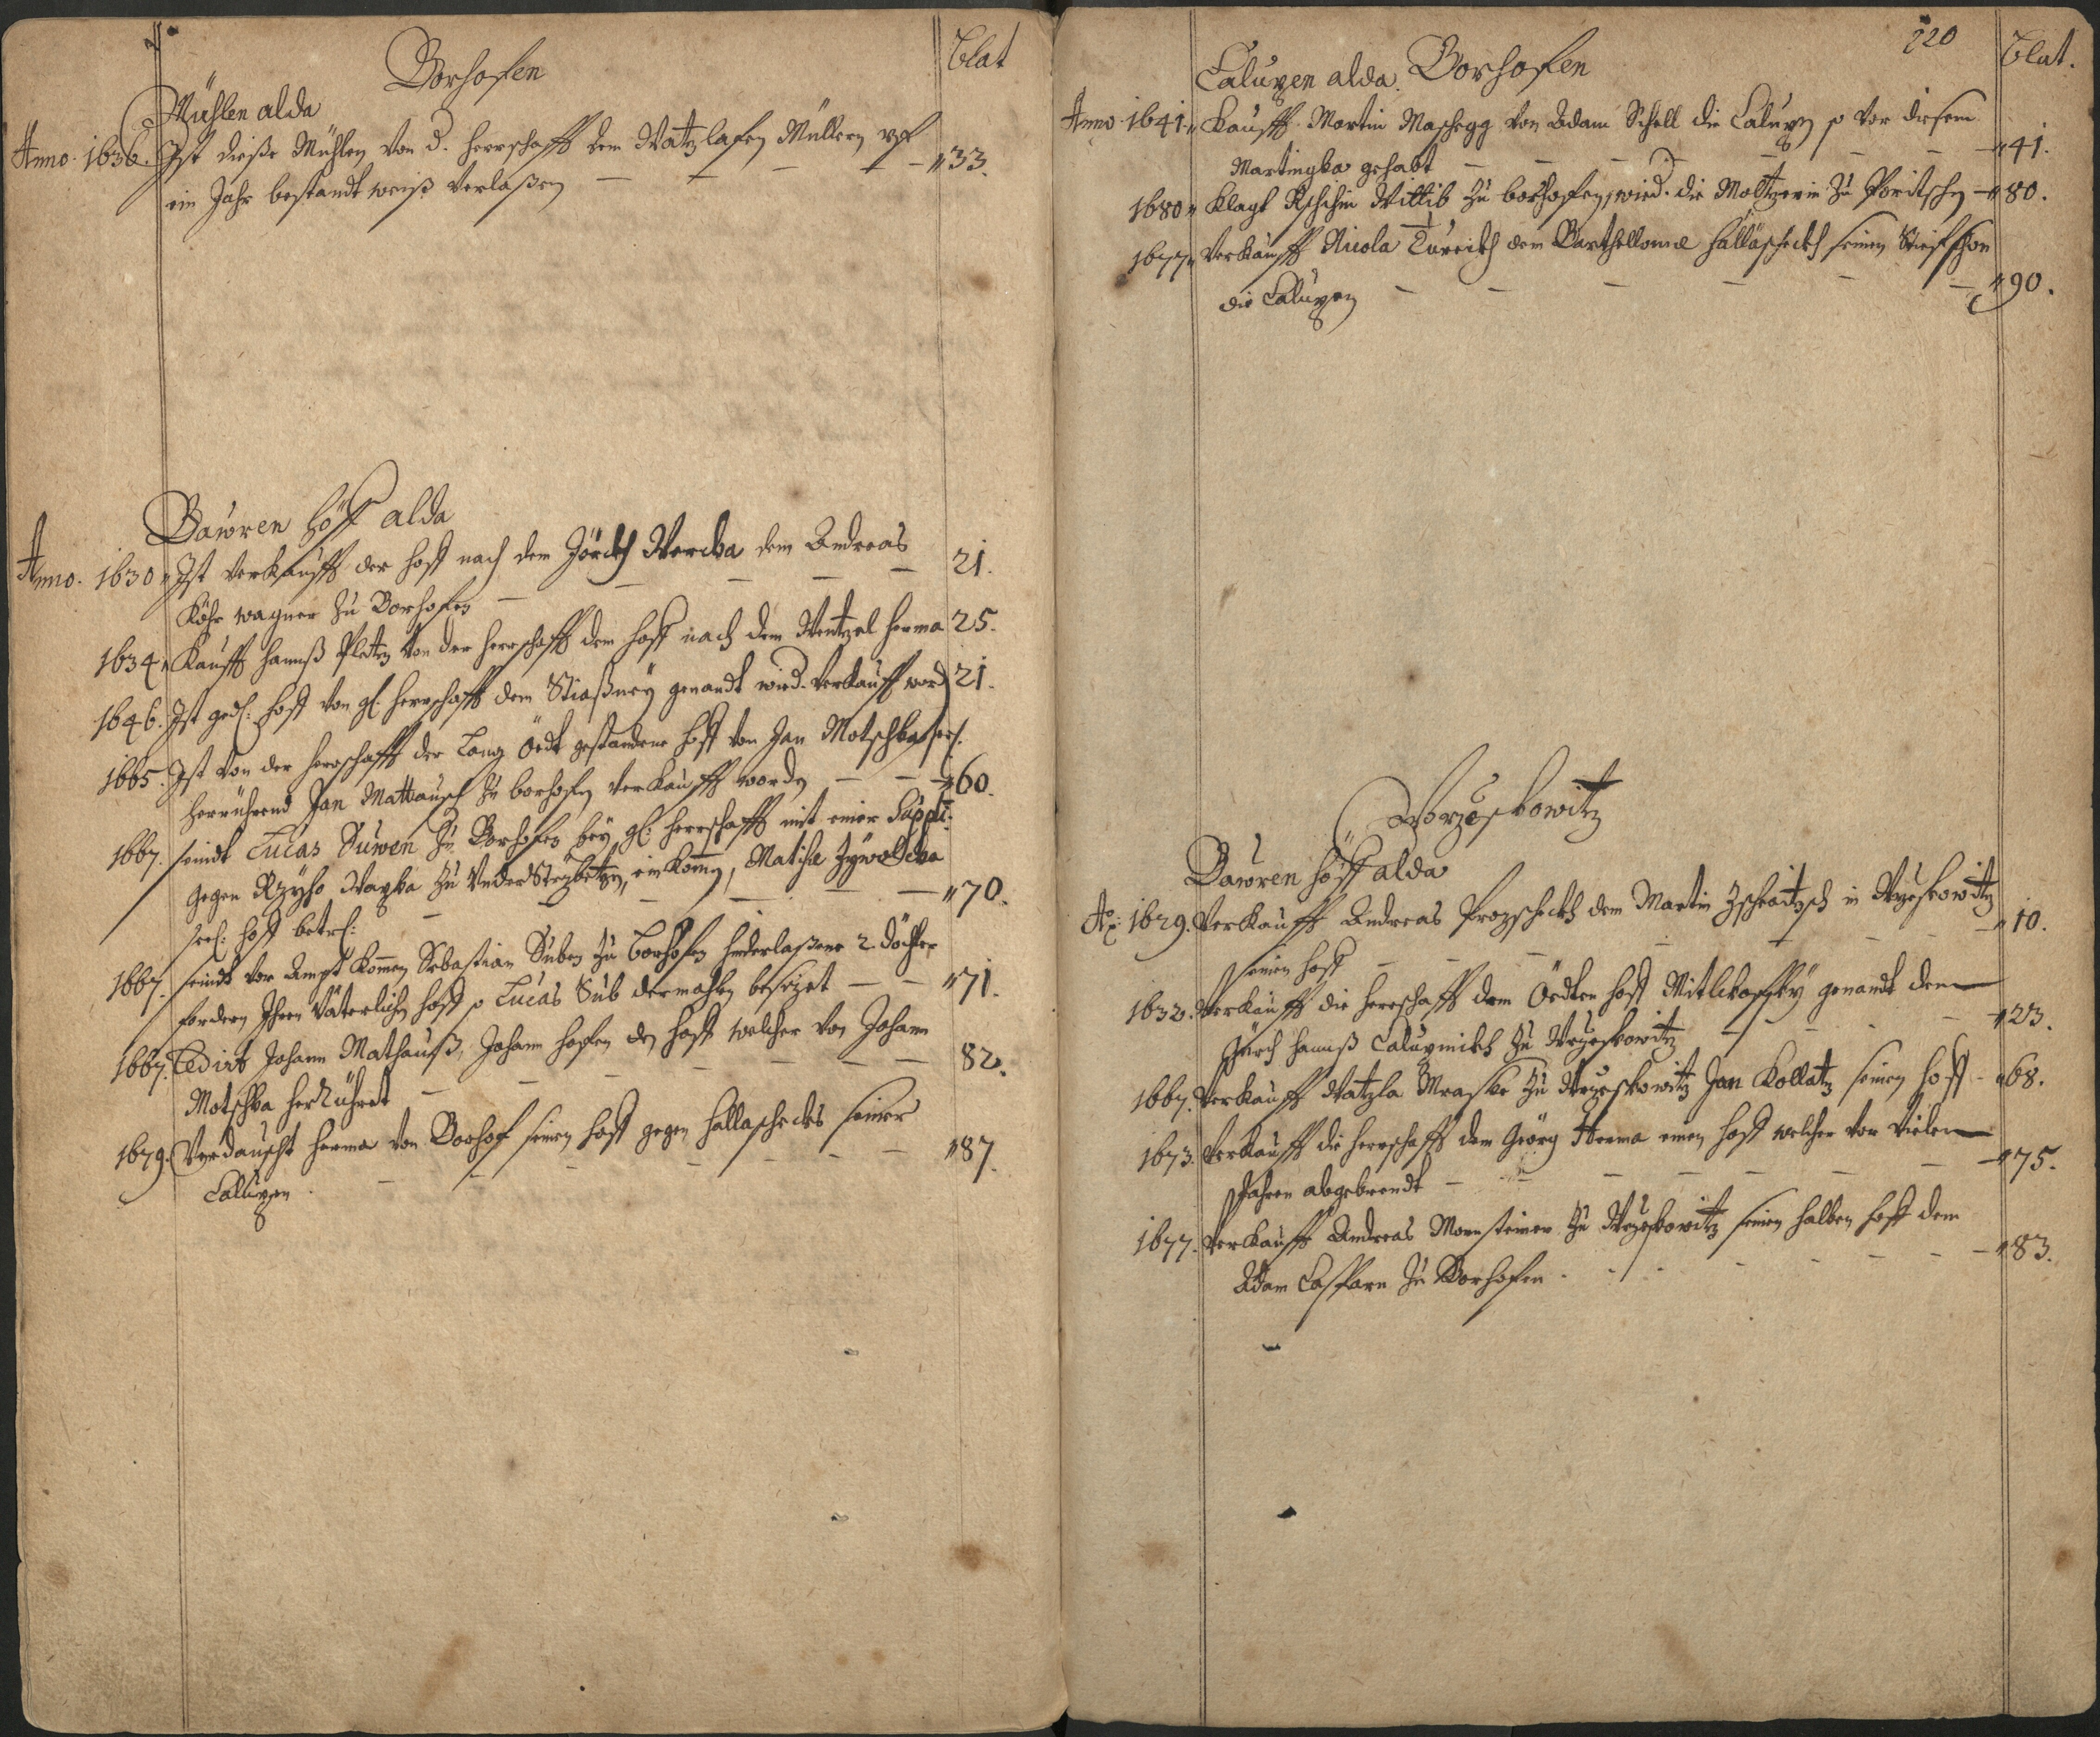 Borhofen
Blat
Mühlen alda
Anno 1636. Ist dieße Mühlen von d. herrschafft dem Watzlafen Müllern uf
ein Jahr bestandt weiß verlaßen — — — — „33.
Bawren höff alda
Anno 1630 „ Ist verkaufft der hoff nach dem Jörckh Wercka dem Andreas
Köhr wagner zu Borhofen — — — — 21.
1634 „ Kaufft Hannß Pletz von der herrschafft dem hoff nach dem Wentzel Herma 25.
1646. Ist ged: hoff von gl: herrschafft dem Stiaßney genandt wied. verkaufft word 21.
1665. Ist von der herrschafft der Lang öedt gestandene hoff von Jan Motschka
herrührend Jan Mattausch zu borhofen verkaufft worden — — — „60.
1667. seindt Lucas Suwen zu Borhofen bey gl: herrschafft mit einer Suppli:
gegen Wayka zu UnderStrzbetzen, einkomen, Matiha Zywoldka
seel: hoff betrl: — — — — — „70.
1667. seindt vor Ampt komen Sebastian Suben zu Borhofen hinderlaßene 2 döchter
fordern Ihren Väterlichen hoff so Lucas Sub dermahlen besizet — — „71.
1667. Cedirt Johann Mathauß, Johann hofen den hoff welcher von Johann
Motschka herRührdt — — — — — 82.
1679. Verdauscht Herma von Borhof seinen hoff gegen Hallascheckes seiner
Caluppen. — — — — — — „87.
220
Caluppen alda. Borhofen
Blat.
Anno 1641 „ Kaufft Martin Maschegg von Adam Schell die Caluppen so vor diesem
Martinzka gehabt — — — — — „41.
1680 „ Klagt Wittib zu borhofen, wied. die Moltzerin zu Poritschen — „80.
1677 „ Verkaufft Nicola Tureckh dem Barthellome Hallascheckh seinem Stiefsohn
die Caluppen — — — — — — „90.
Worzeskowitz
Bawren höff alda
Ao: 1629. Verkaufft Andreas Prozscheckh dem Martin Zschratzsch in Wrzeskowitz
seinen hoff — — — — — „10.
1632. Verkaufft die herrschafft dem Öedten hoff Mitlikoffsky genandt dem
Jürch Hannß Calupnickh zu Wrzeskowitz — — — „23.
1667. Verkaufft Watzla Mraske zu Wrzeskowitz Jan Kollatz seinen hoff — „68.
1673. Verkaufft die herrschafft dem Geörg Herma einen hoff welcher vor vielen
Jahren abgebrendt — — — — — — „75.
1677. Verkaufft Andreas Mornsteiner zu Wrzeskowitz seinen halben hoff dem
Adam Casparn zu Borhofen. — — — — — „83.